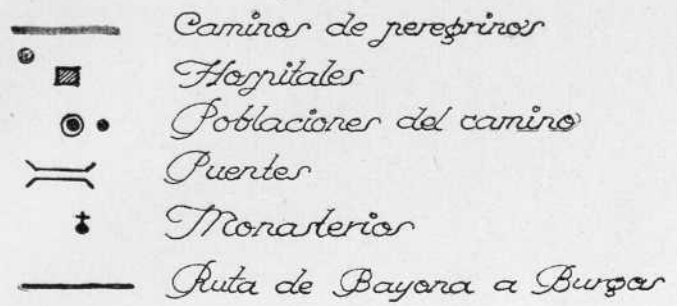 Caminos de peregrinos
Hospitales
Poblaciones del camino
Puentes
Monasterios
Ruta de Bayona a Burgos